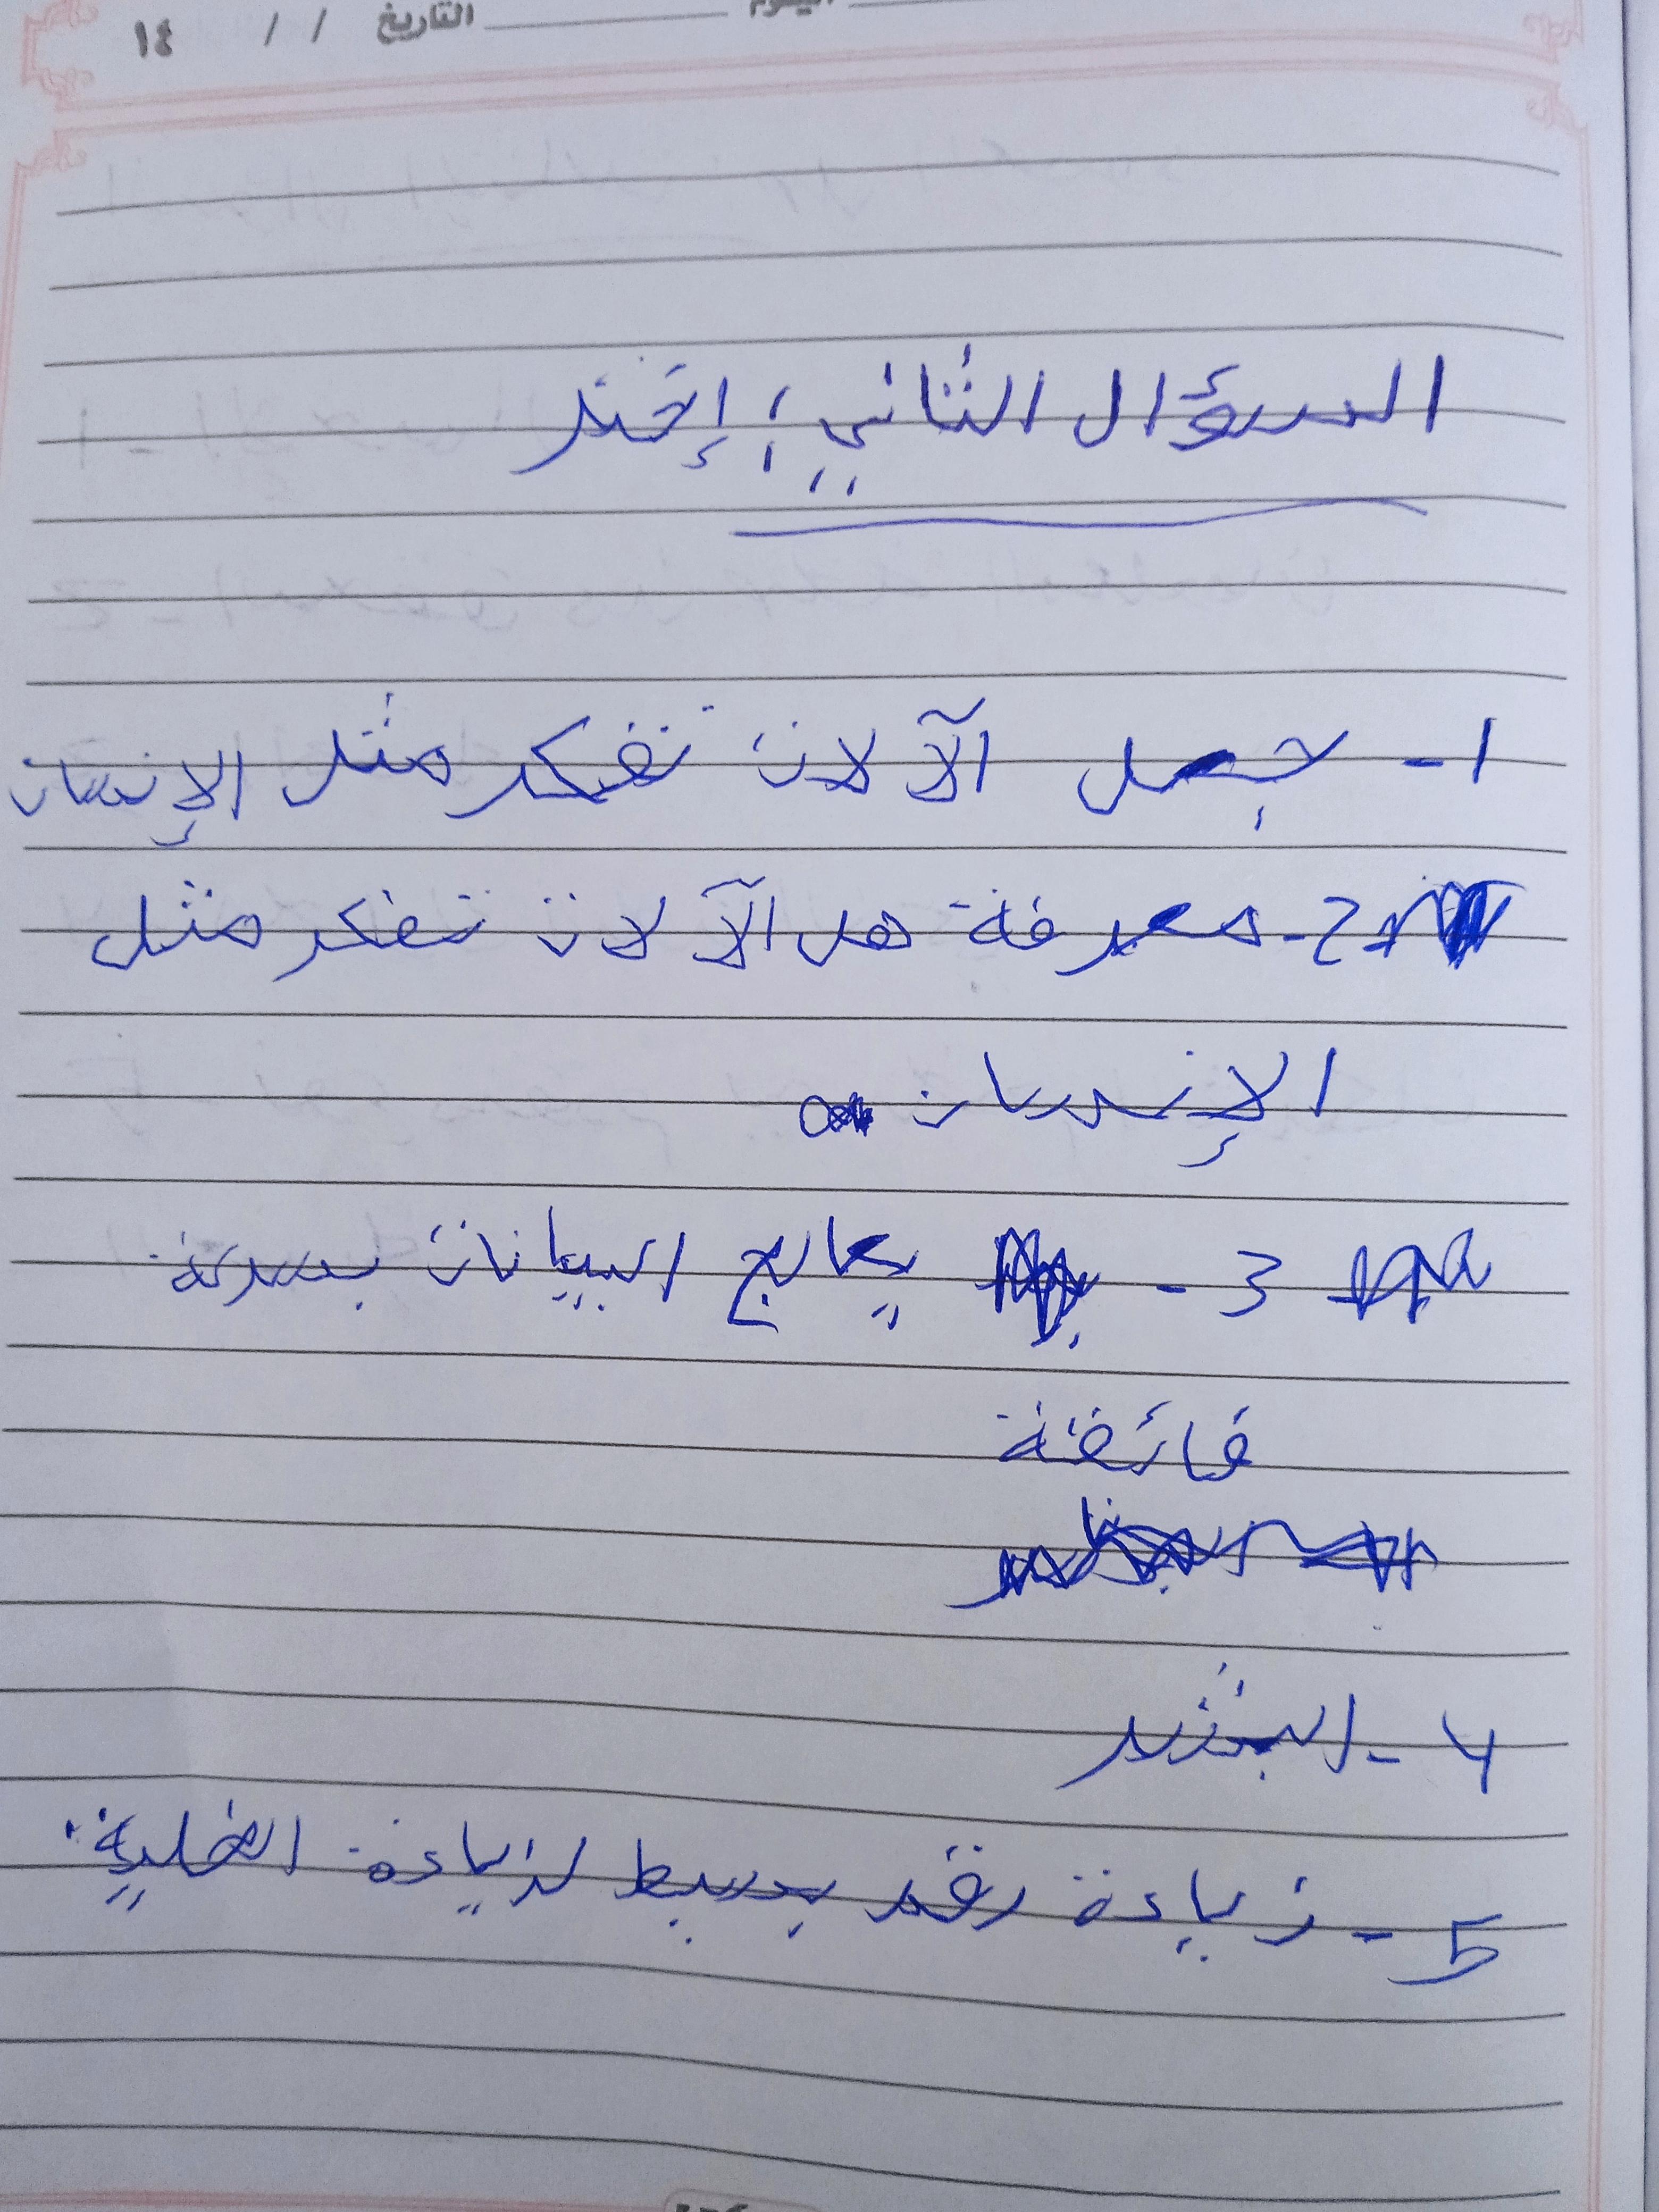 التاريخ / / ١٤
السؤال الثاني: إختر
1- جعل الآلات تفكر مثل الإنسان
2- معرفة هل الآلات تفكر مثل
الإنسان
3- يعالج البيانات بسرعة
فائقة
4- البشر
5- زيادة رقم بسيط لزيادة الخلية